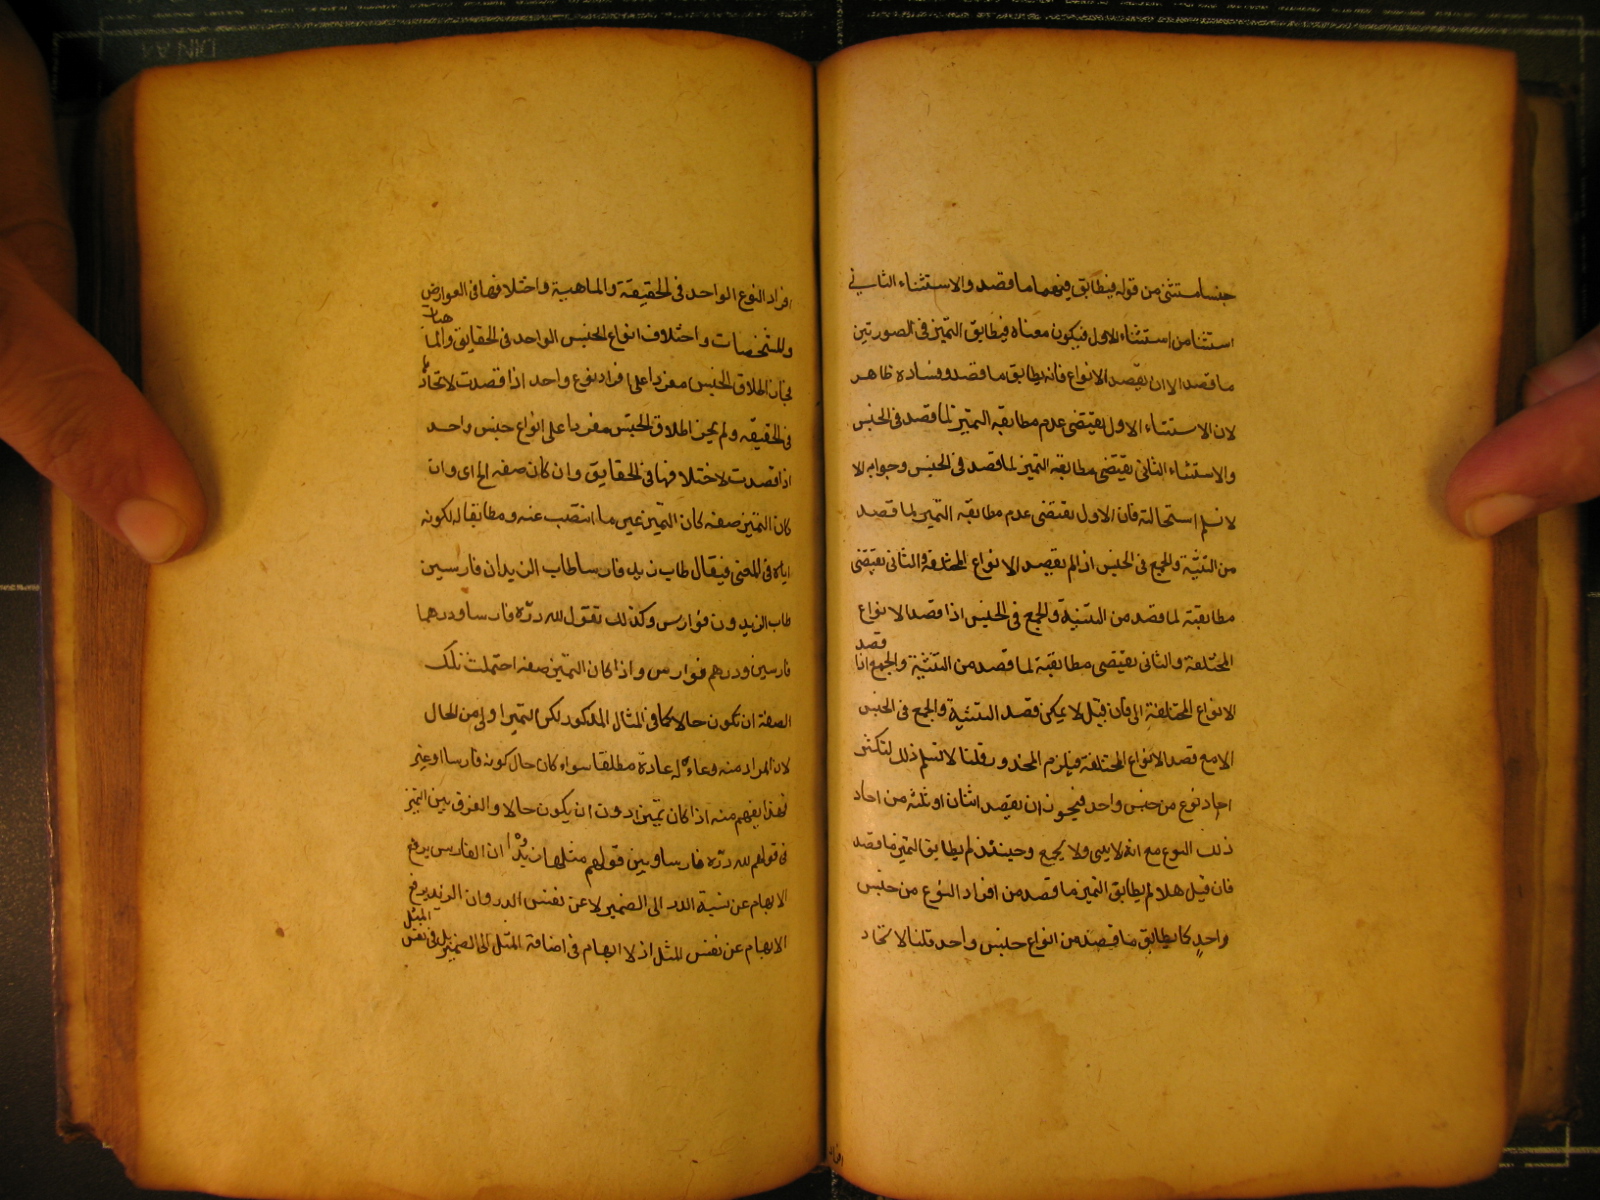 جنسا مستثنى من قوله فيطابق فيهما ما قصد والاستثناء الثاني
استثنا من استثناء الاول فيكون معناه فيطابق التميز فى الصورتين
ما قصد الا ان يقصد الانواع فانه يطابق ما قصد وفساده ظاهر
لان الاستثناء الاول يقتضى عدم مطابقة التميز لما قصد فى الجنس
والاستثناء الثانى يقتضى مطابقة التميز لما قصد فى الجنس وجوابه لا
لا نسلم استحالته فان الاول يقتضى عدم مطابقة التميز لما قصد
من التثنية والجمع فى الجنس اذا لم يقصد الانواع المختلفة والثانى يقتضى
مطابقته لما قصد من التثنية والجمع فى الجنس اذا قصد الانواع
المختلفة والثانى يقتضى مطابقته لما قصد من التثنية والجمع اذا قصد
الانواع المختلفة الى فان قيل لا يمكن قصد التثنية والجمع فى الجنس
الا مع قصد الانواع المختلفة فيلزم المحذور قلنا لا نسلم ذلك لتكثر
احاد نوع من جنس واحد فيجوز ان يقصد اثنان او ثلثة من احاد
ذلك النوع مع انه لا يثنى ولا يجمع وحينئذ لم يطابق التميز ما قصد
فان قيل هلا لم يطابق التميز ما قصد من افراد النوع من جنس
واحد كما يطابق ما قصد من انواع جنس واحد قلنا لاتحاد
افراد
افراد النوع الواحد فى الحقيقة والماهية واختلافها فى العوارض
والمشخصات واختلاف انواع الجنس الواحد فى الحقايق والماهيات
فجاز اطلاق الجنس مفردا على افراد نوع واحد اذا قصدت لاتحادها
فى الحقيقة ولم يجز اطلاق الجنس مفردا على انواع جنس واحد
اذا قصدت لاختلافها فى الحقايق وان كان صفة الخ اى وان
كان التميز صفة كان التميز عين ما انتصب عنه ومطابقا له لكونه
اياه فى المعنى فيقال طاب زيد فارسا طاب الزيدان فارسين
طاب الزيدون فوارس وكذلك تقول لله درّه فارسا ودرهما
فارسين ودرهم فوارس واذا كان التميز صفة احتملت تلك
الصفة ان تكون حالا كما فى المثال المذكور لكن التميز اولى من الحال
لان المراد منه دعاء له عادة مطلقا سواء كان حال كونه فارسا او غيره
فهذا يفهم منه اذا كان تميزا دون ان يكون حالا والفرق بين التميز
فى قولهم لله درّه فارسا وبين قولهم مثلها زبدا ان الفارس يرفع
الابهام عن نسبة الدر الى الضمير لا عن نفس الدر وان الزبد يرفع
الابهام عن نفس المثل اذ لا ابهام فى اضافة المثل الى الضمير بل فى نفس المثل